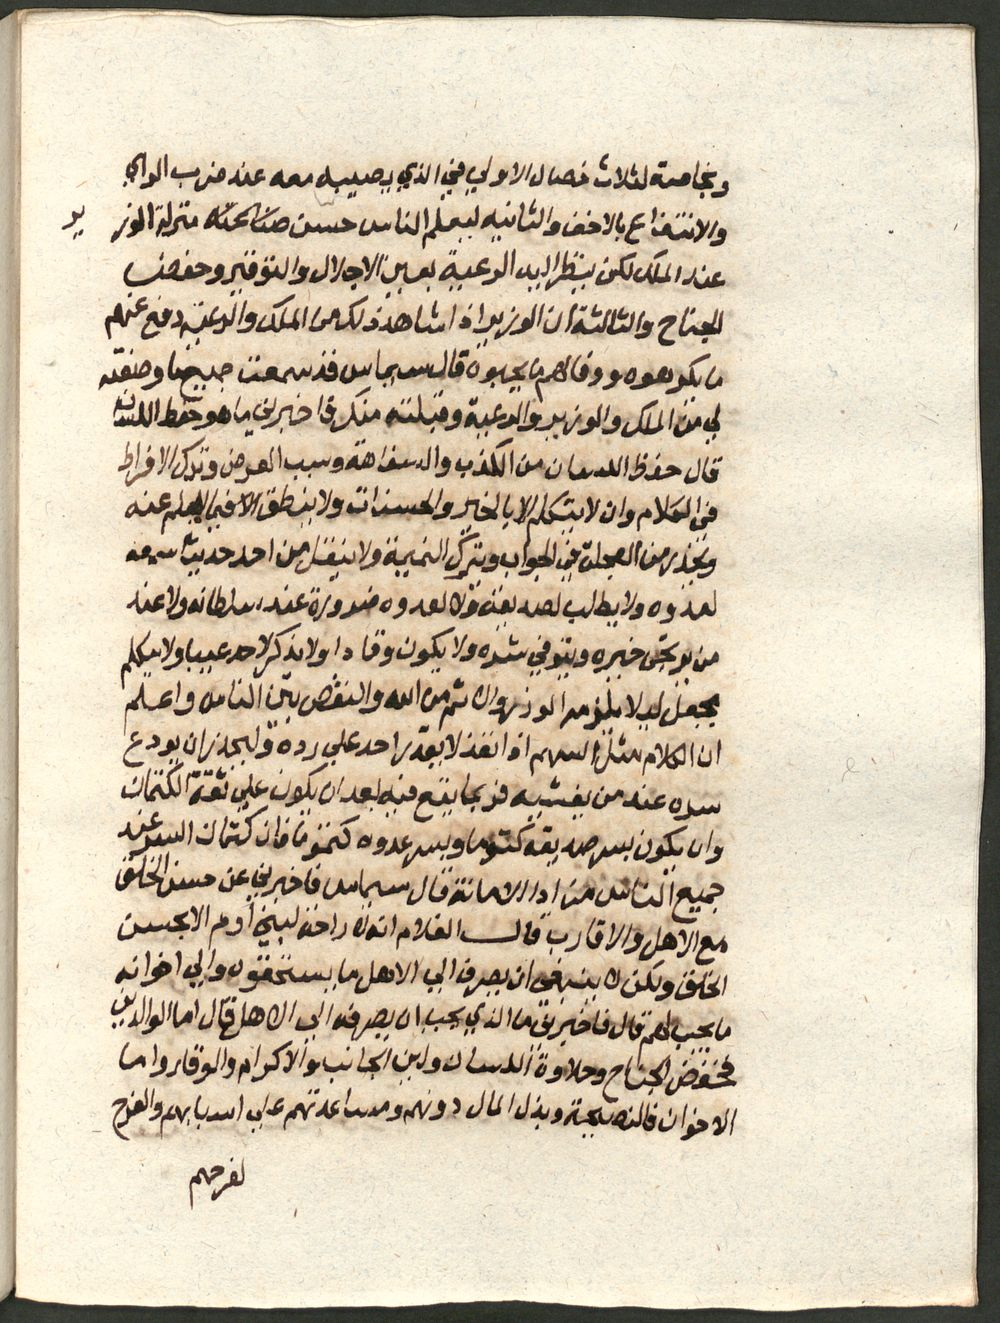 وبخاصة لثلاث خصال الاولي في الذي يصيبه معه عند ضرب الراي
والانتفاع بالاخف والثانيه ليعلم الناس حسن منزلة الوزير
عند الملك لكن ينظر اليه الرعية بعين الاجلال والتوقير وخفض
الجناح والثالثة ان الوزير اذا شاهد ذلك من الملك والرعية دفع عنهم
ما يكرهوه ووفالهم ما يحبوه قال سيماس قد سمعت جميع ما وصفته
لي من الملك والوزير والرعية وقبلته منك فاخبرني ما هو حفظ اللسان
قال حفظ اللسان من الكذب والسفاهة وسب العرض وترك الافراط
في الكلام وان لا يتكلم الا بالخير والحسنات ولا ينطق الا فيما يعلم عنه
ويحذر من العجلة في الجواب ويترك النميمة ولا ينقل من احد حديثا سمعه
لعدوه ولا يطلب لصديقه ولا لعدوه ضرورة عند سلطانه ولا عند
من يرتجى خيره ويتوفي شره ولا يكون وقادا ولا يذكر لاحد عيبا ولا يتكلم
بجهل ليلا يلزمه الوزر والاثم من الله والنقص بين الناس واعلم
ان الكلام مثل السهم اذا نفذ لا يقدر احد علي رده وليحذر ان يودع
سره عند من يفشيه فربما يقع فيه بعد ان يكون علي ثقة الكتمان
وان يكون بسر صديقه كتوما وبسر عدوه كتوما فان كتمان السر عند
جميع الناس من ادا الامانة قال سيماس فاخبرني عن حسن الخلق
مع الاهل والاقارب قال الغلام انه لا راحة لبني ادم الا بحسن
الخلق ولكن لا ينبغي ان يصرف الي الاهل ما يستحقوه والي اخوانه
ما يجب لهم قال فاخبرني ما الذي يجب ان يصرفه الى الاهل قال اما الوالدين
فخفض الجناح وحلاوة اللسان ولين الجانب والاكرام والوقار واما
الاخوان فالنصيحة وبذل المال دونهم ومساعدتهم علي اسبابهم والفرح
لفرحهم